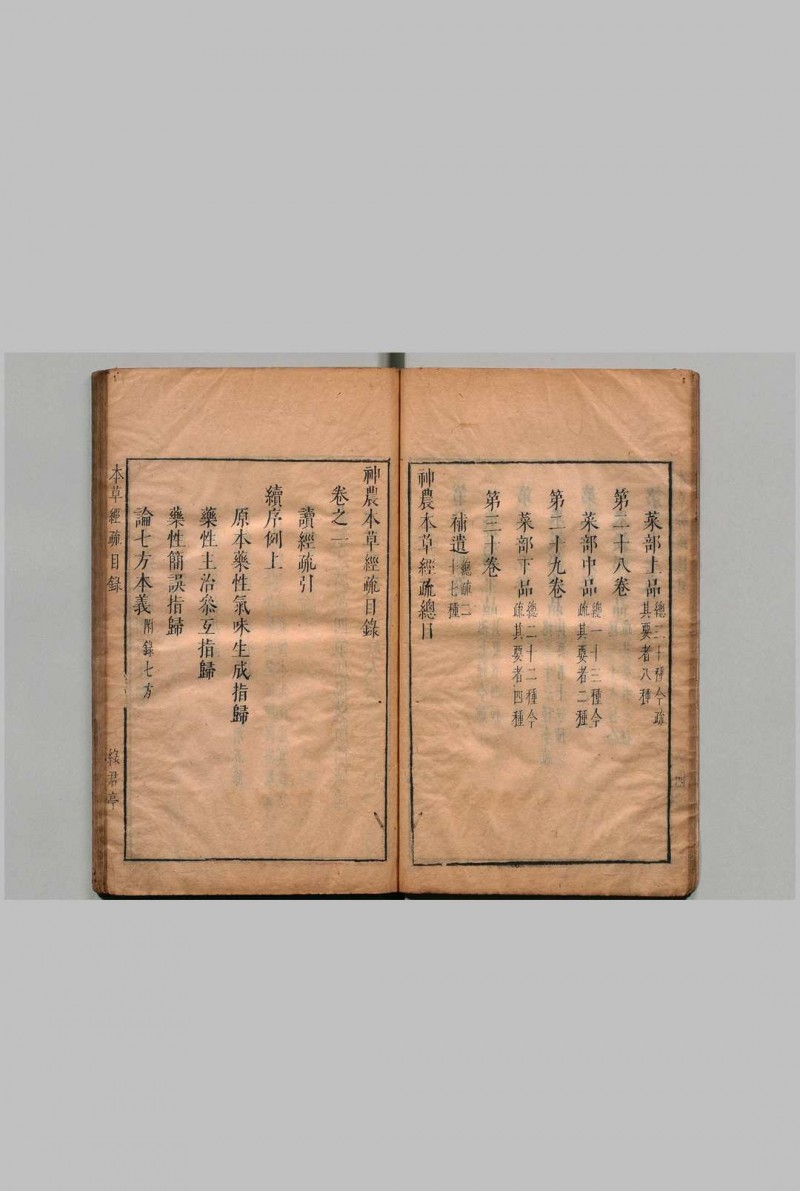 菜部上品總三十種今疏其要者八種
第二十八卷
菜部中品總一十三種今疏其要者二種
第二十九卷
菜部下品總二十二種今疏其要者四種
第三十卷
補遺總疏二十七種
神農本草經疏總目
神農本草經疏目錄
卷之一
讀經疏引
續序例上
原本藥性氣味生成指歸
藥性主治參互指歸
藥性簡誤指歸
論七方本義附錄七方
本草經疏目錄
綠君亭